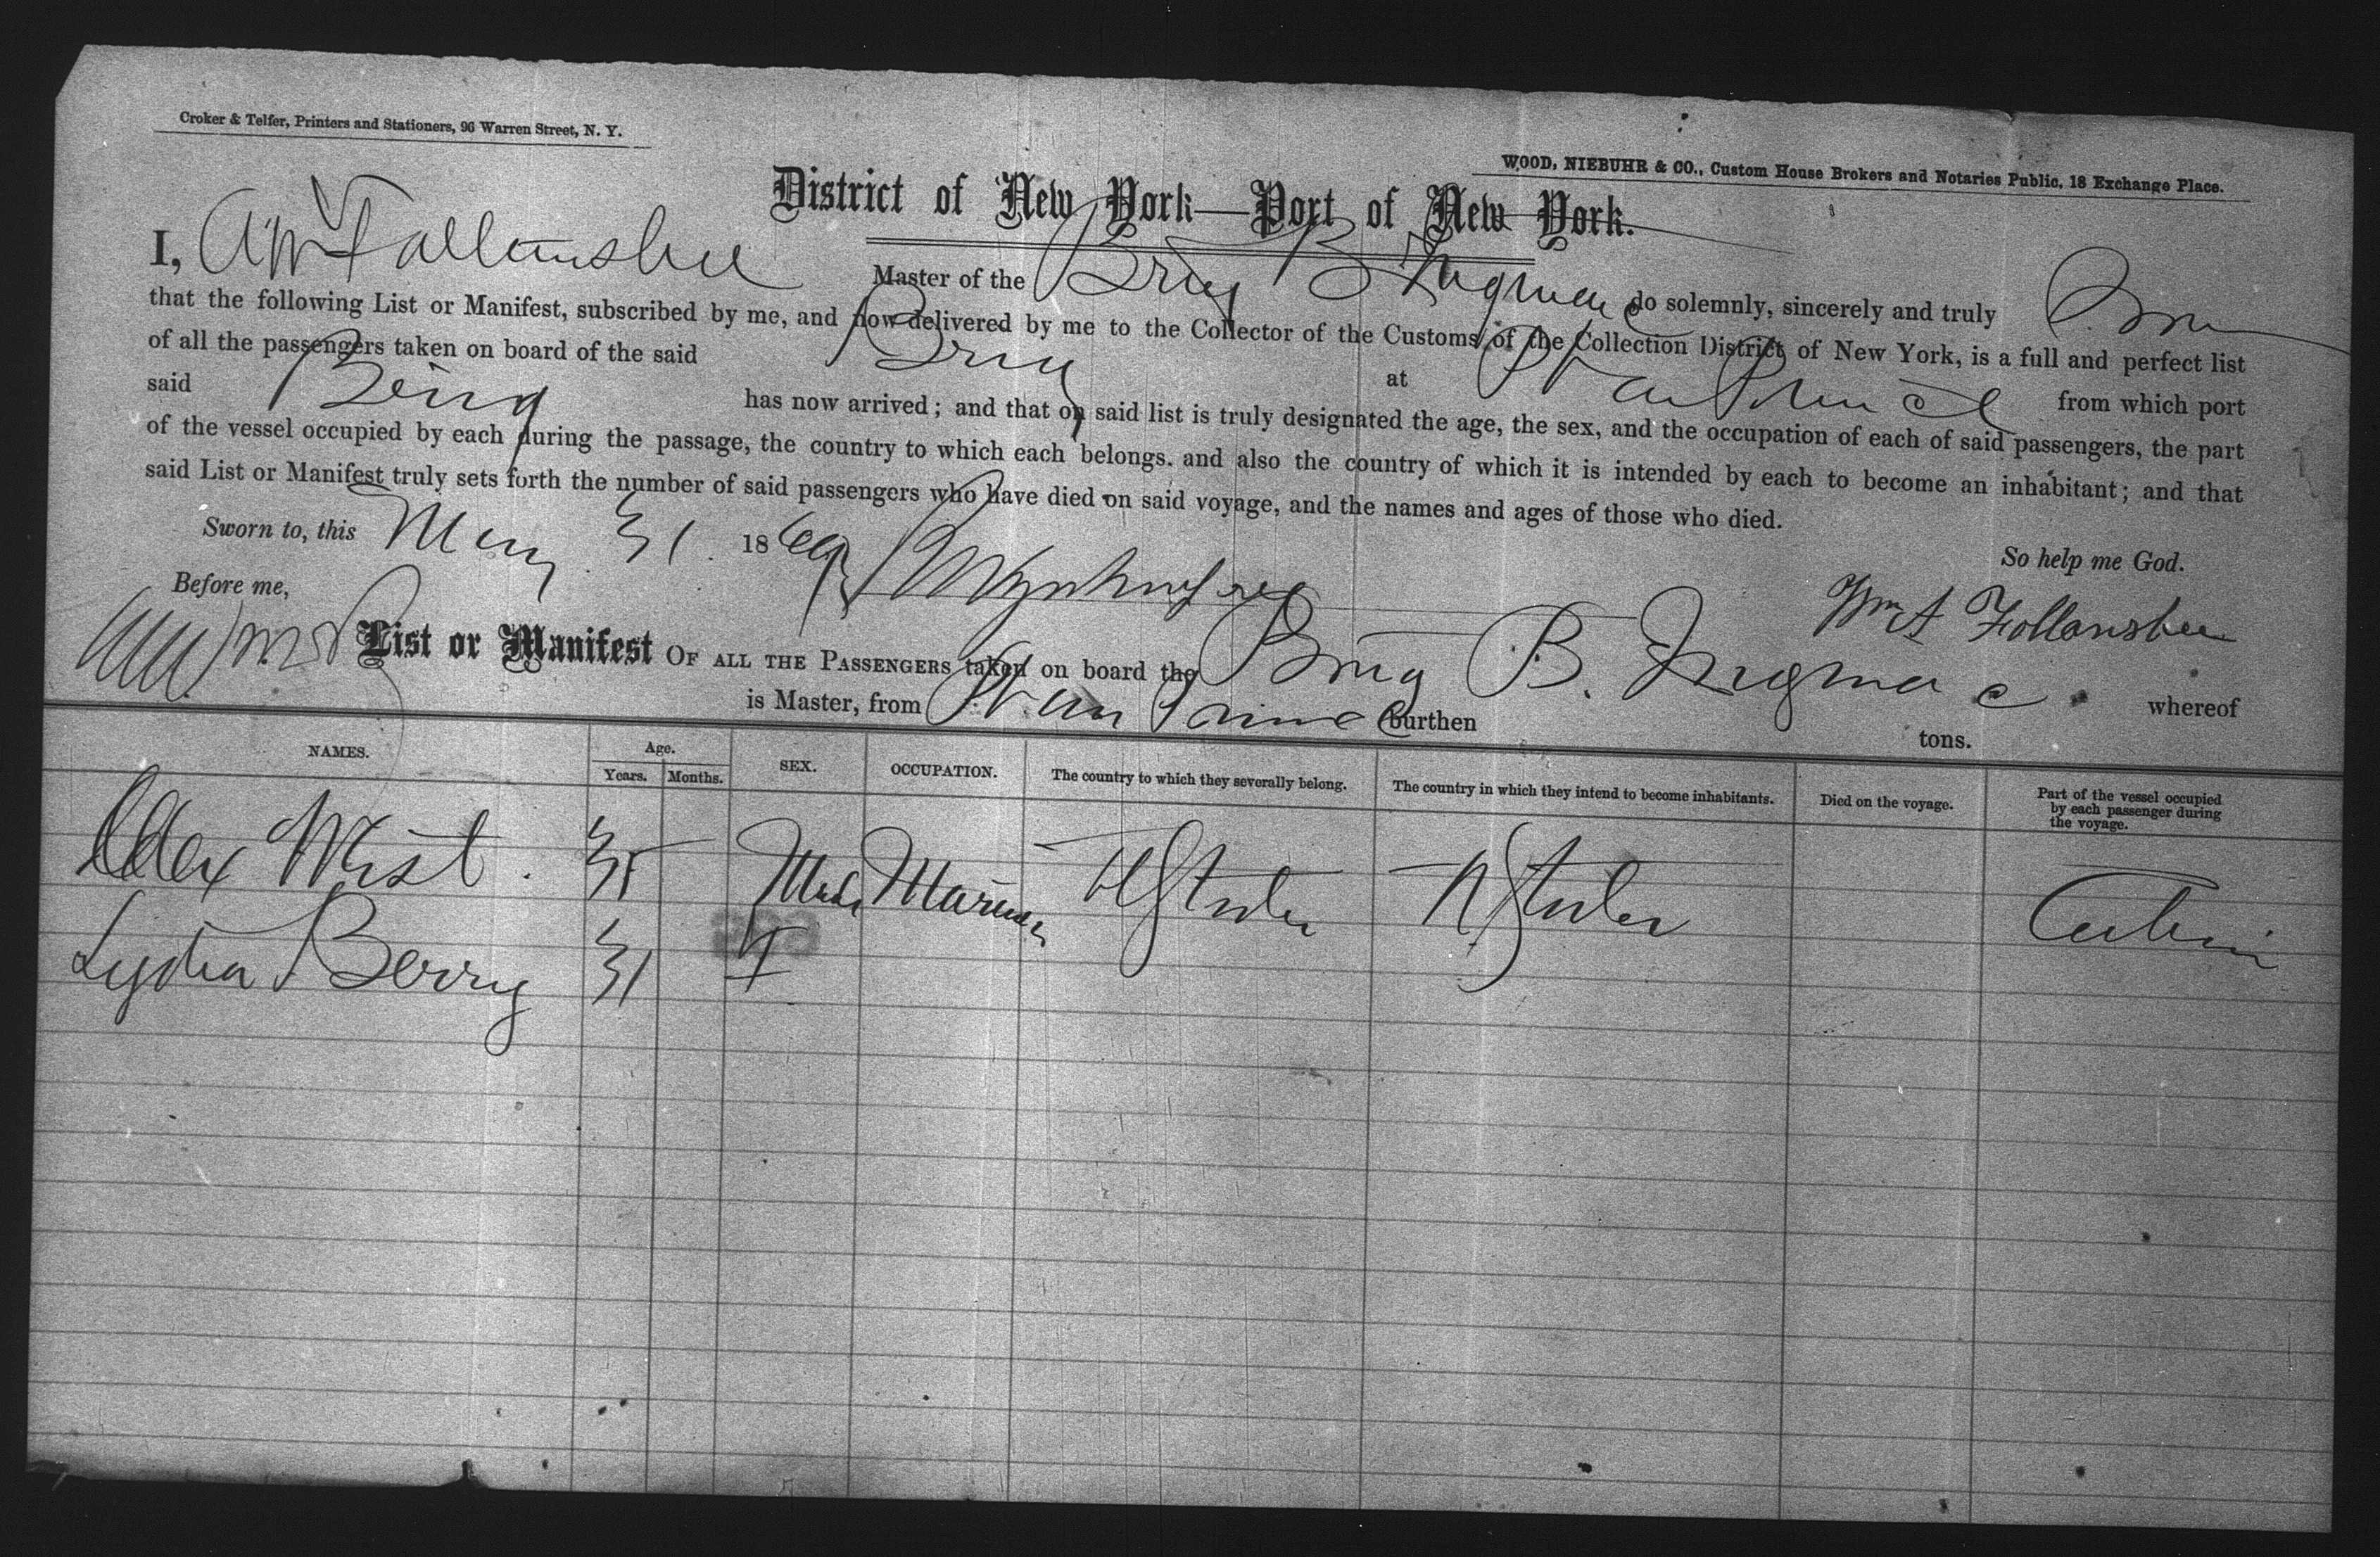 Croker & Telfer, Printers and Stationers, 96 Warren Street, N. Y.
WOOD, NIEBUHR & CO., Custom House Brokers and Notaries Public, 18 Exchange Place.
District of New York—Port of New York.
I, Follansbee Master of the Brig B do solemnly, sincerely and truly
that the following List or Manifest, subscribed by me, and now delivered by me to the Collector of the Customs of the Collection District of New York, is a full and perfect list
of all the passengers taken on board of the said Brig at from which port
said Brig has now arrived; and that on said list is truly designated the age, the sex, and the occupation of each of said passengers, the part
of the vessel occupied by each during the passage, the country to which each belongs. and also the country of which it is intended by each to become an inhabitant; and that
said List or Manifest truly sets forth the number of said passengers who have died on said voyage, and the names and ages of those who died.
Sworn to, this May 31 1869
So help me God.
Before me,
Wm A Follansbee
List or Manifest OF ALL THE PASSENGERS taken on board the Brig B. whereof
is Master, from burthen tons.
NAMES. Age. Years. Months. SEX. OCCUPATION. The country to which they severally belong. The country in which they intend to become inhabitants. Died on the voyage. Part of the vessel occupied by each passenger during the voyage.
Alex West. 35 Male Mariner U States U States Cabin
Lydia Berry 31 F